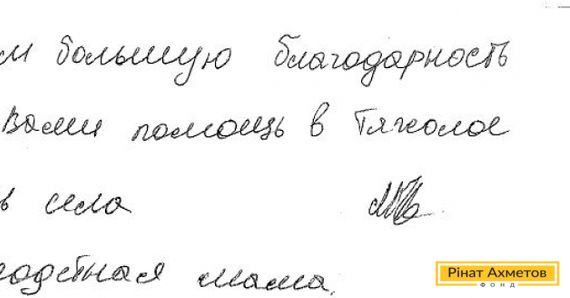 м большую благодарность
Вами помощь в тяжолое
в села
годетная мама.
Рінат Ахметов
ФОНД